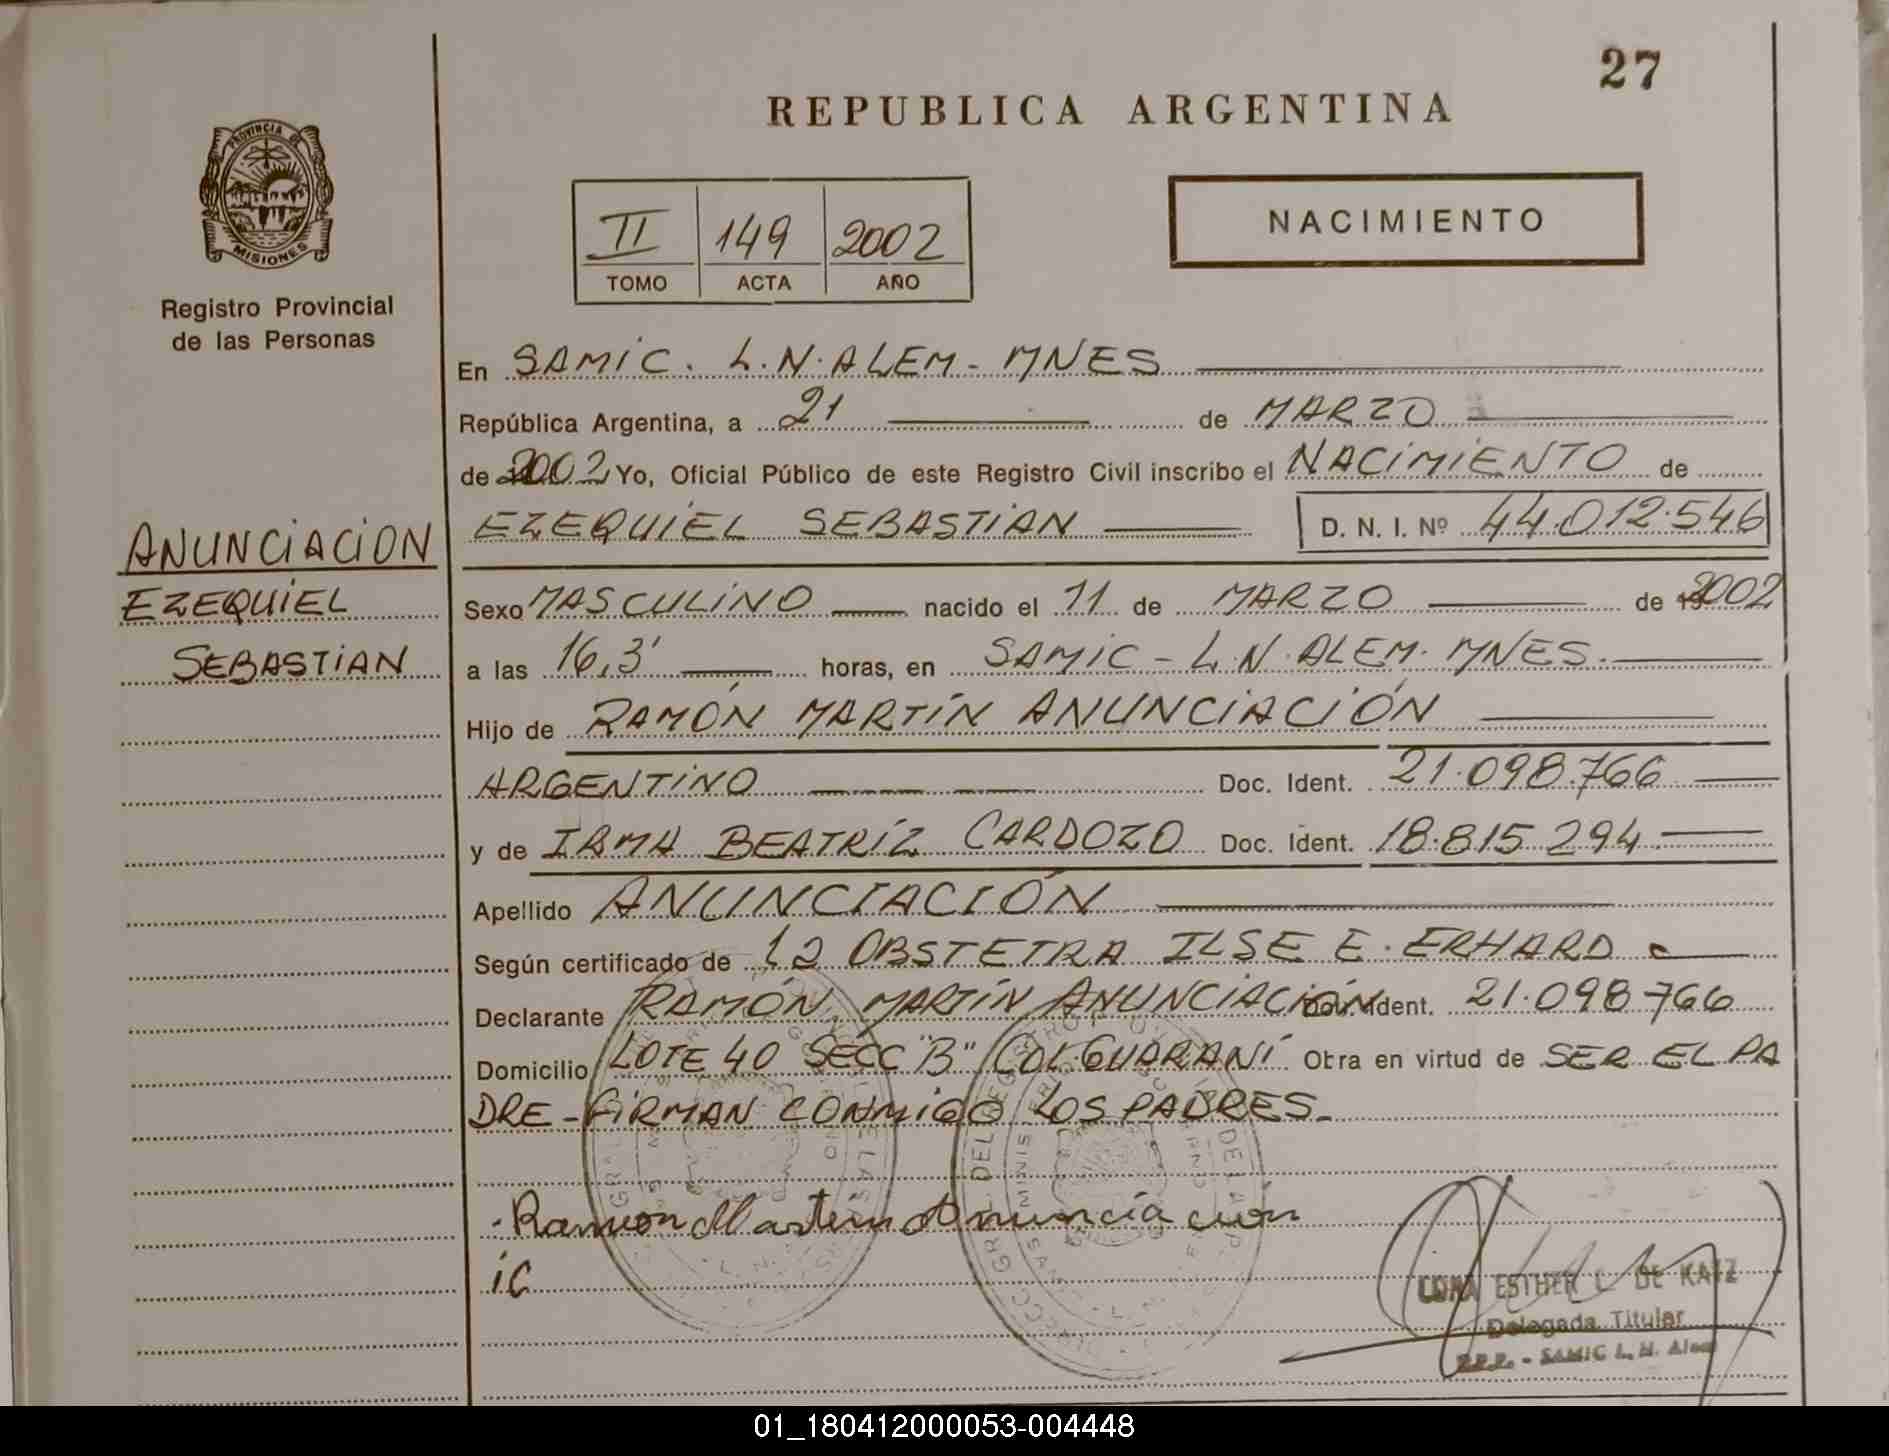 27
REPUBLICA ARGENTINA
PROVINCIA DE
MISIONES
Registro Provincial
de las Personas
II 149 2002
TOMO ACTA AÑO
NACIMIENTO
En SAMIC. L.N.ALEM-MNES
República Argentina, a 21 de MARZO
de 2002 Yo, Oficial Público de este Registro Civil inscribo el NACIMIENTO de
EZEQUIEL SEBASTIAN D. N. I. Nº 44.012.546
ANUNCIACION
EZEQUIEL
SEBASTIAN
Sexo MASCULINO nacido el 11 de MARZO de 2002
a las 16,3' horas, en SAMIC-L.N.ALEM.MNES.
Hijo de RAMÓN MARTÍN ANUNCIACIÓN
ARGENTINO Doc. Ident. 21.098.766
y de IRMA BEATRÍZ CARDOZO Doc. Ident. 18.815.294
Apellido ANUNCIACIÓN
Según certificado de OBSTETRA ILSE E. ERHARD
Declarante RAMÓN MARTÍN ANUNCIACIÓN Doc. Ident. 21.098766
Domicilio LOTE 40 SECC "B" COL.GUARANÍ Obra en virtud de SER EL PA
DRE-FIRMAN CONMIGO LOS PADRES-
Ramon Martin Anunciación
iC
ESTHER L. DE KATZ
Delegada Titular
R.P.P. - SAMIC L. N. Alem
01_180412000053-004448